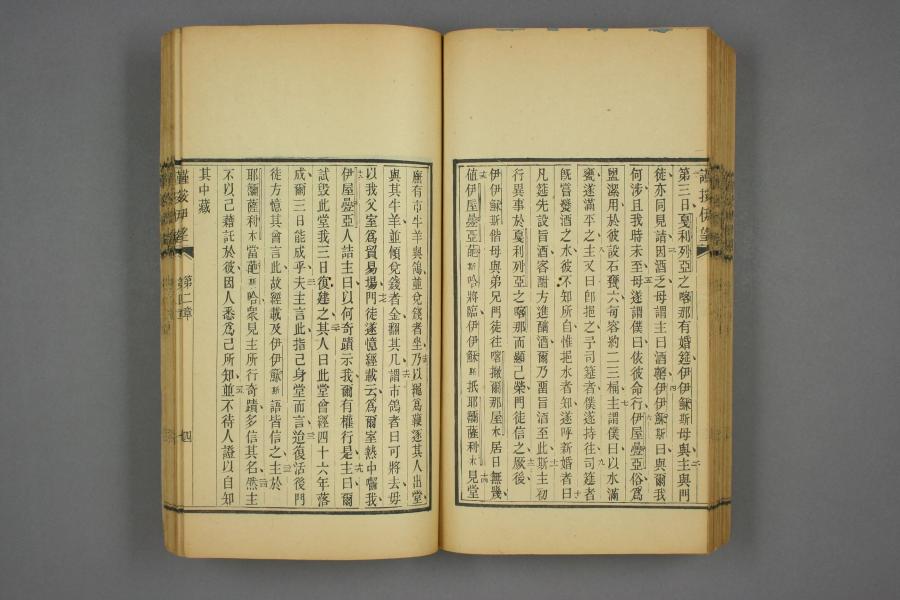 第三日戛利列亞之喀那有婚筵伊伊穌斯母與主與門
徒亦同見請因酒乏母謂主曰酒罄伊伊穌斯曰與爾我
何涉且我時未至母遂謂僕曰依彼命行伊屋疊亞俗爲
盥潔用於彼設石甕六每容約二三桶主謂僕曰以水滿
甕遂滿平之主又曰卽挹之予司筵者僕遂持往司筵者
旣嘗變酒之水彼不知所自惟挹水者知遂呼新婚者曰
凡筵先設旨酒客酣方進醨酒爾乃畱旨酒至此斯主初
行異事於戛利列亞之喀那而顯己榮門徒信之厥後
伊伊穌斯偕母與弟兄門徒往喀撇爾那屋木居日無幾
値伊屋疊亞葩斯哈將臨伊伊穌斯抵耶嚕薩利木見堂
廡有市牛羊與鴿並兌錢者坐乃以繩爲鞭逐其人出堂
與其牛羊並傾兌錢者金翻其几謂市鴿者曰可將去毋
以我父室爲貿易場門徒遂憶經載云爲爾室熱中囓我
伊屋疊亞人詰主曰以何奇蹟示我爾有權行是主曰爾
試毀此堂我三日復建之其人曰此堂曾經四十六年落
成爾三日能成乎夫主言此指己身堂而言迨復活後門
徒方憶其曾言此故經載及伊伊穌斯語皆信之主於
耶嚕薩利木當葩斯哈衆見主所行奇蹟多信其名然主
不以己藉託於彼因人悉爲己所知並不待人證以自知
其中藏
第二章
四